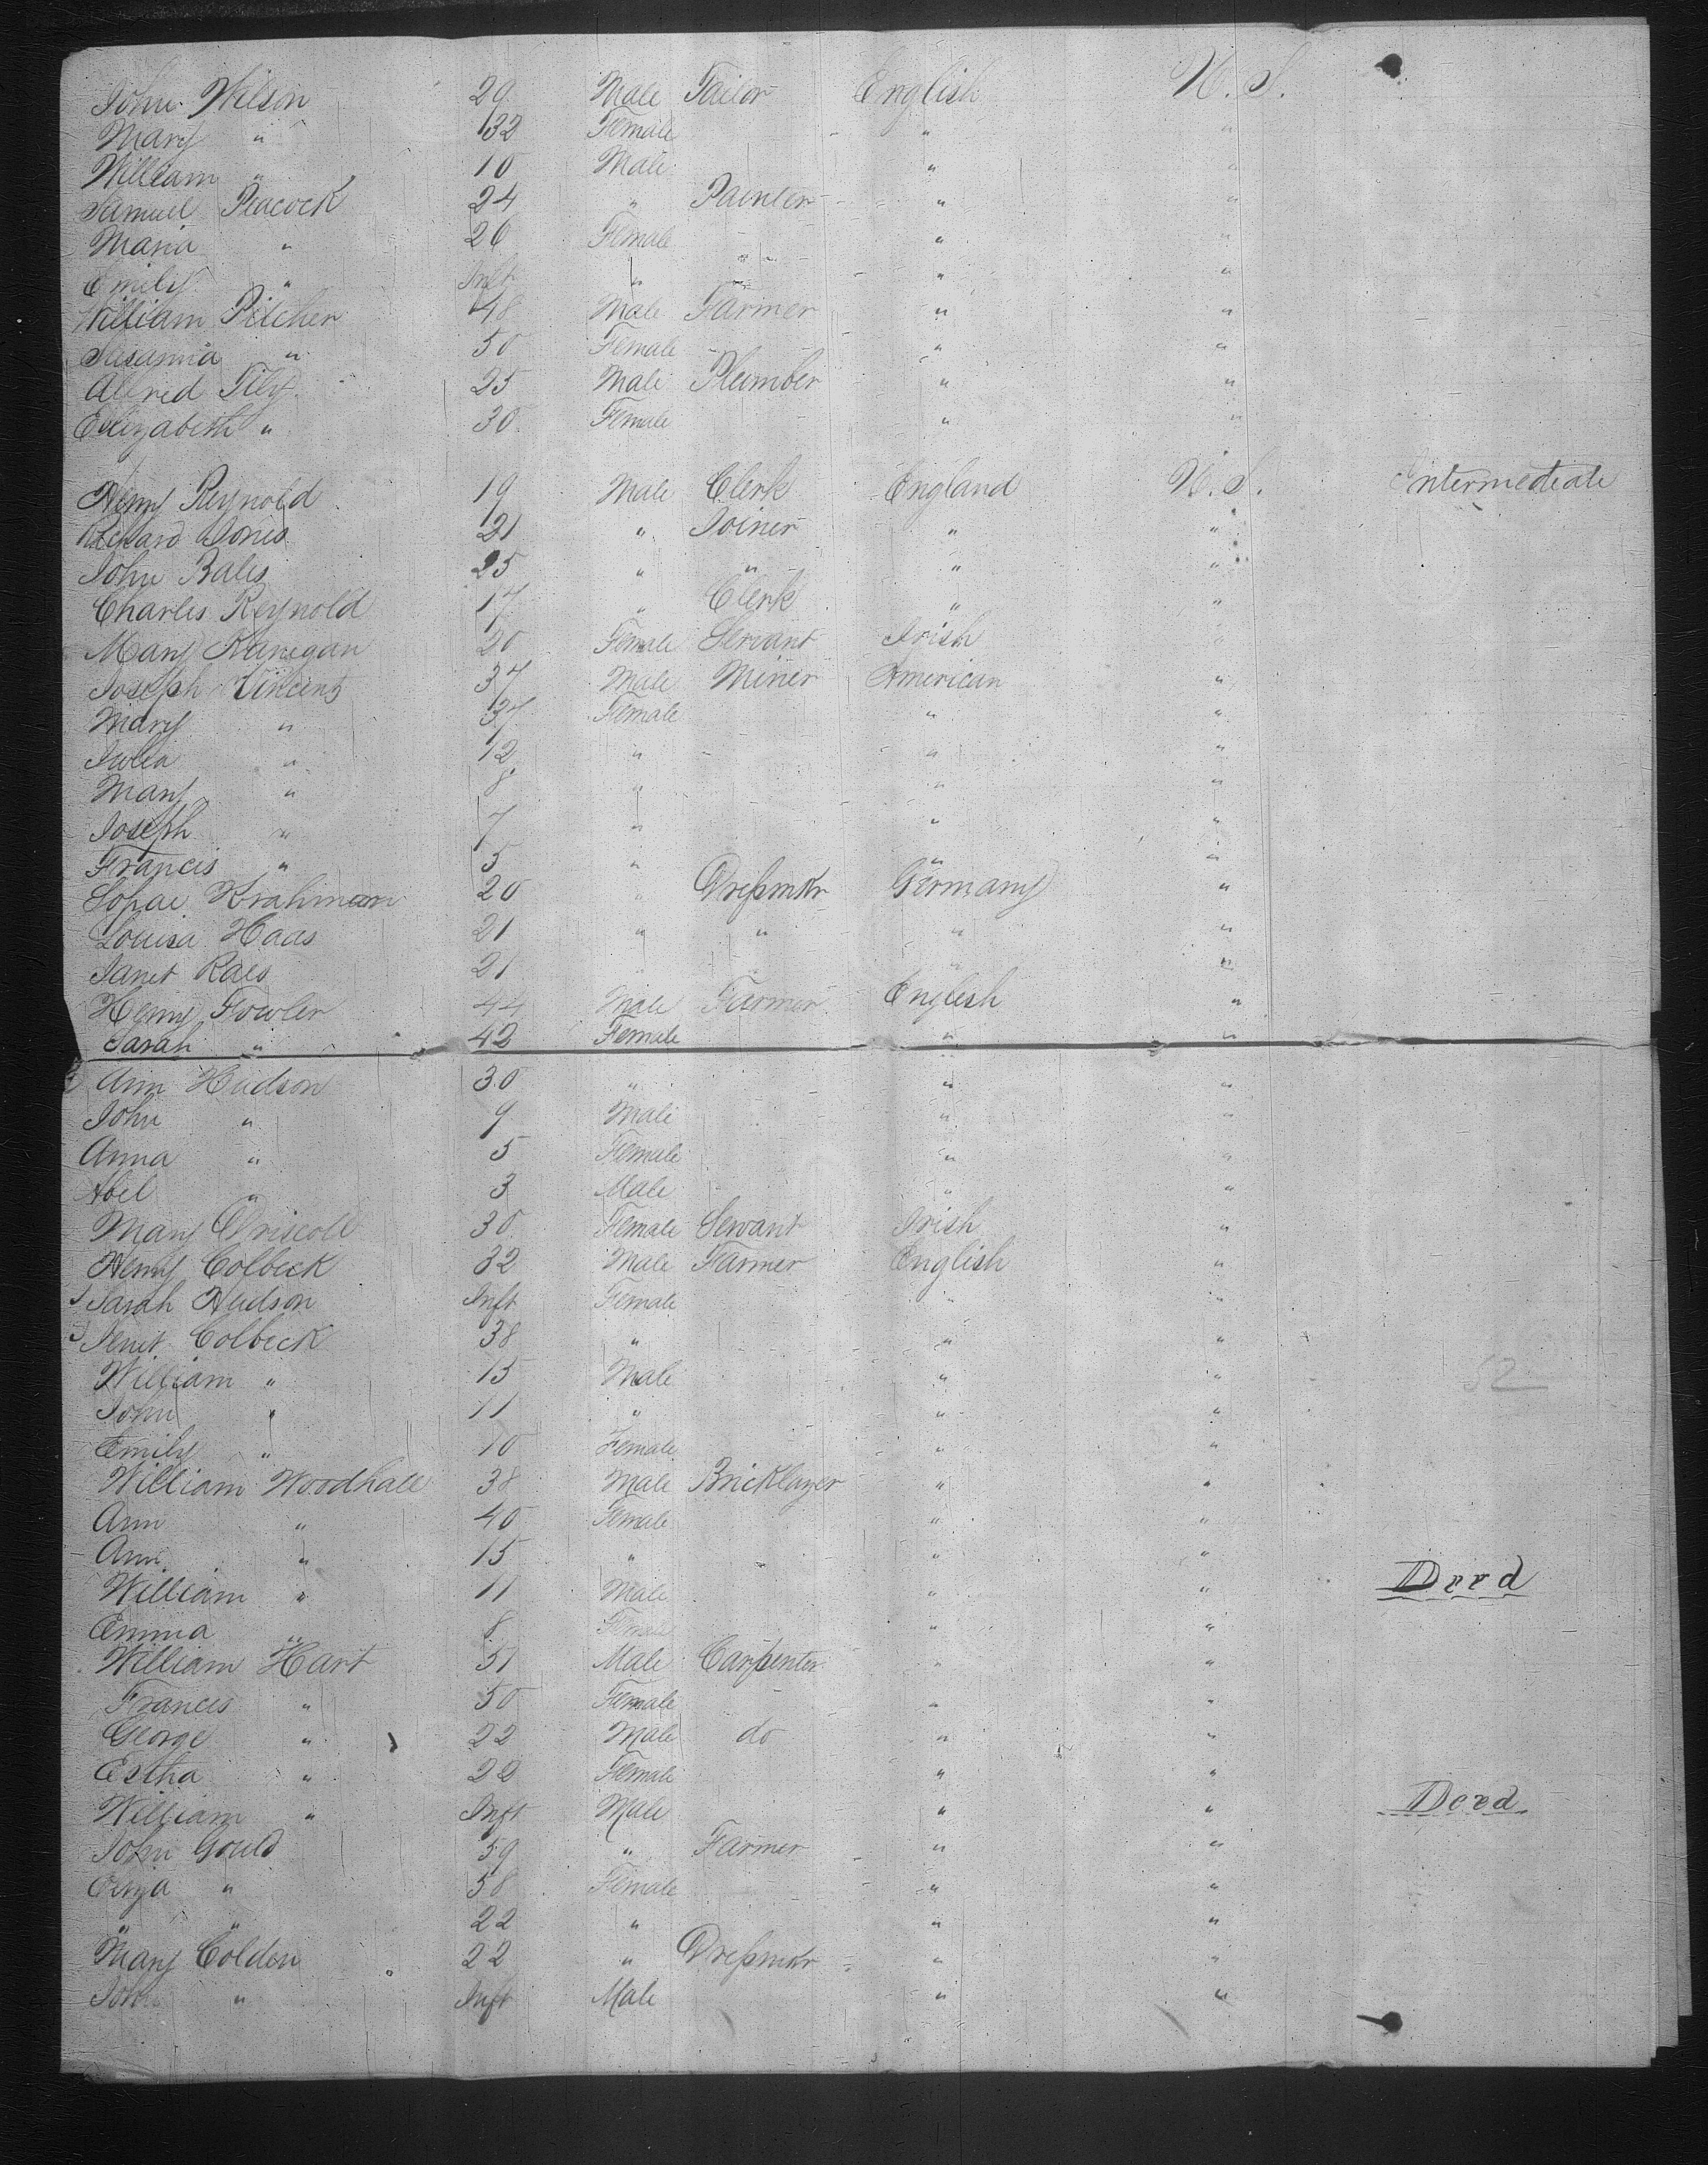 John Wilson 29 Male Tailor English U.S.
Mary " 32 Female " "
William " 10 Male " "
Samuel Peacock 24 " Painter " "
Maria " 26 Female " "
Emily " Inft " " "
William Pilcher 48 Male Farmer " "
Susanna " 50 Female " "
Alfred Tily 25 Male Plumber " "
Elizabeth " 30 Female " "
Henry Reynold 19 Male Clerk England U.S. Intermediate
Richard Jones 21 " Joiner " "
John Bales 25 " " " "
Charles Reynold 17 " Clerk " "
Mary Kanegan 20 Female Servant Irish "
Joseph Vincent 37 Male Miner American "
Mary " 37 Female " "
Julia " 12 " " "
Mary " 8 " " "
Joseph " 7 " " "
Francis " 5 " " "
Sophae Krahmann 20 " Dressmkr Germany "
Louisa Haas 21 " " " "
Janet Raes 21 " " " "
Henry Fowler 44 Male Farmer English "
Sarah " 42 Female " "
Ann Hudson 30 " " "
John " 9 Male " "
Anna " 5 Female " "
Abel " 3 Male " "
Mary Driscoll 30 Female Servant Irish "
Henry Colbeck 32 Male Farmer English "
Sarah Hudson Inft Female " "
Jenet Colbeck 38 " " "
William " 15 Male " " 52
John " 11 " " "
Emily " 10 Female " "
William Woodhall 38 Male Bricklayer " "
Ann " 40 Female " "
Ann " 15 " " "
William " 11 Male " " Deed
Emma " 8 Female " "
William Hart 51 Male Carpenter " "
Frances " 50 Female " "
George " 22 Male do " "
Estha " 22 Female " "
William " Inft Male " " Deed
John Gould 59 " Farmer " "
" 58 Female " "
" " 22 " " "
Mary Colden 22 " Dressmkr " "
John " Inft Male " "